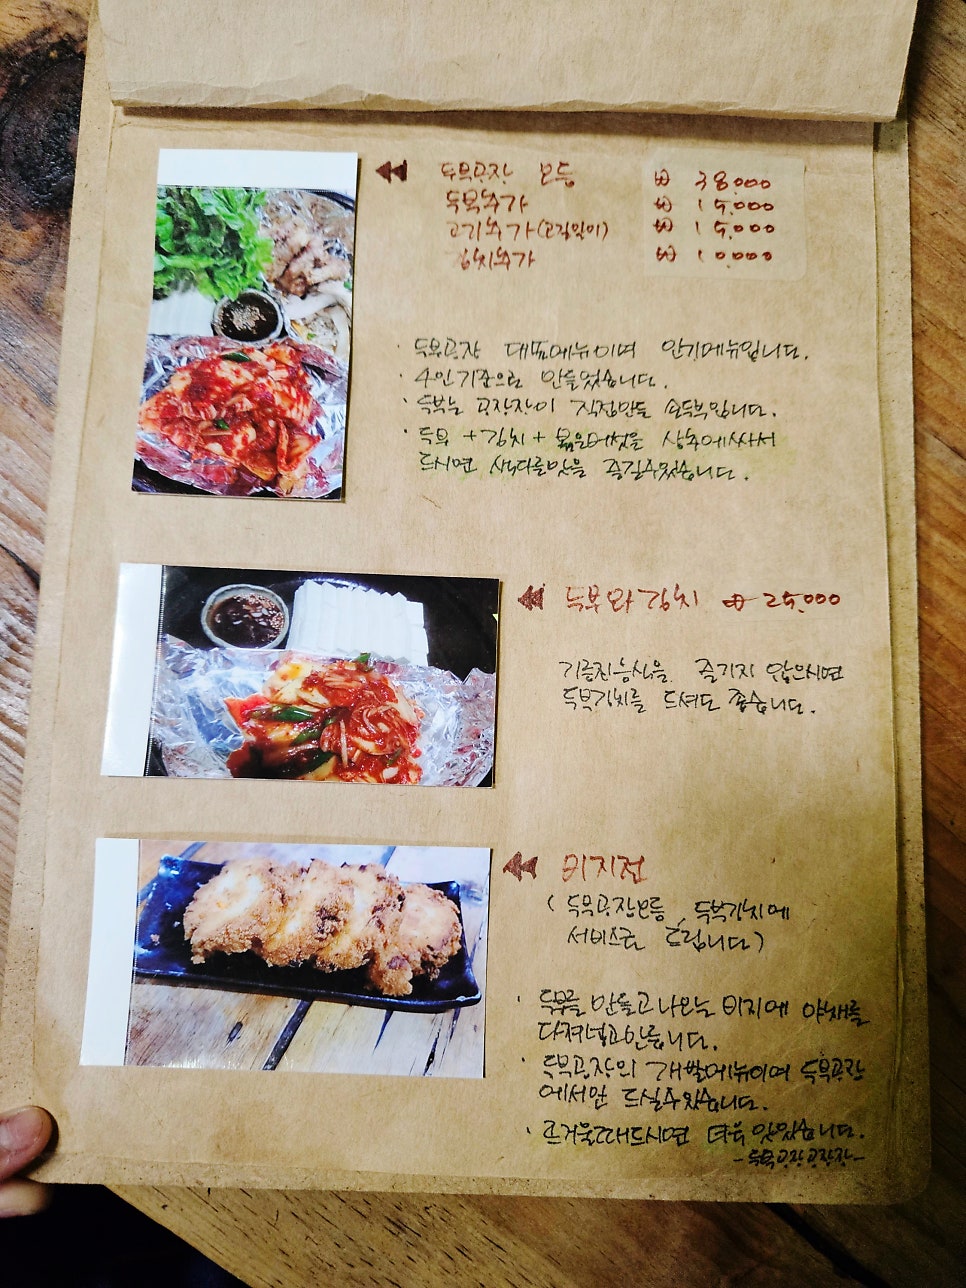 두부공장 모듬 ₩ 38,000
두부추가 ₩ 15,000
고기추가(오겹말이) ₩ 15,000
김치추가 ₩ 10,000
· 두부공장 대표메뉴이며 인기메뉴입니다.
· 4인기준으로 만들었습니다.
· 두부는 공장장이 직접만든 손두부입니다.
· 두부 + 김치 + 볶은버섯을 상추에싸서
드시면 색다른맛을 즐길수있습니다.
두부와김치 ₩ 25,000
기름진음식을 즐기지 않으시면
두부김치를 드셔도 좋습니다.
비지전
( 두부공장모듬, 두부김치에
서비스로 드립니다)
· 두부를 만들고 나오는 비지에 야채를
다져넣고만듭니다.
· 두부공장의 개발메뉴이며 두부공장
에서만 드실수있습니다.
· 뜨거울때드시면 더욱 맛있습니다.
-두부공장공장장-